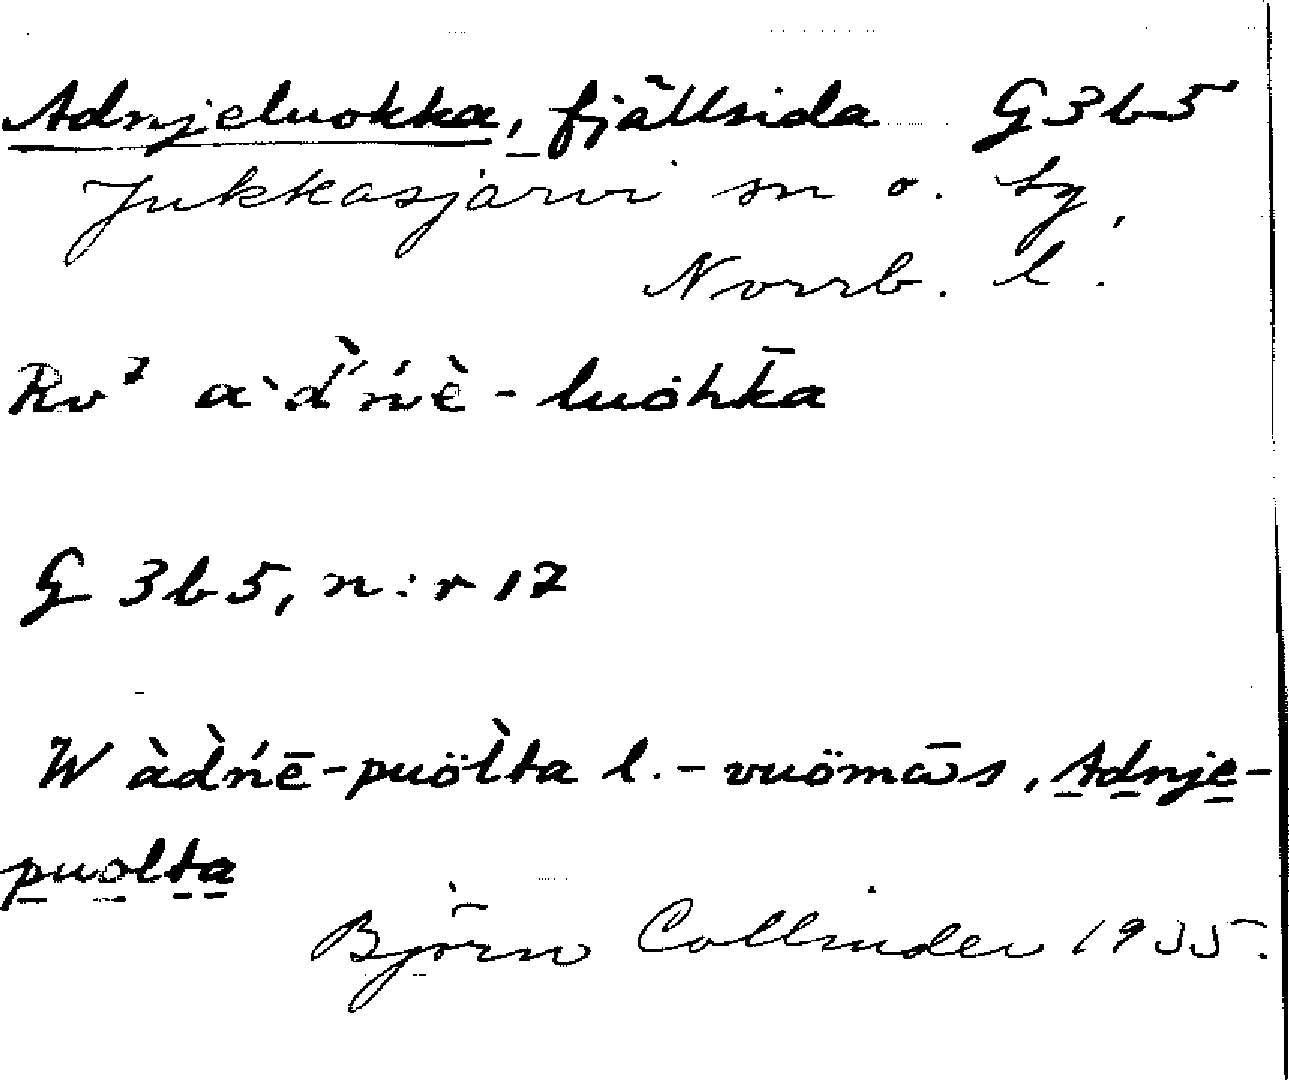 Adnjeluokka, fjällsida G3b5
Jukkasjärvi sn o. tg,
Norrb. l.
Rv² a`d̀́ńè-luöhk̄a
G 3b5, n:r 17
W àd̀ńē-puöl̀ta l. -vuömās, Adnje-
puolta
Björn Collinder 1935.